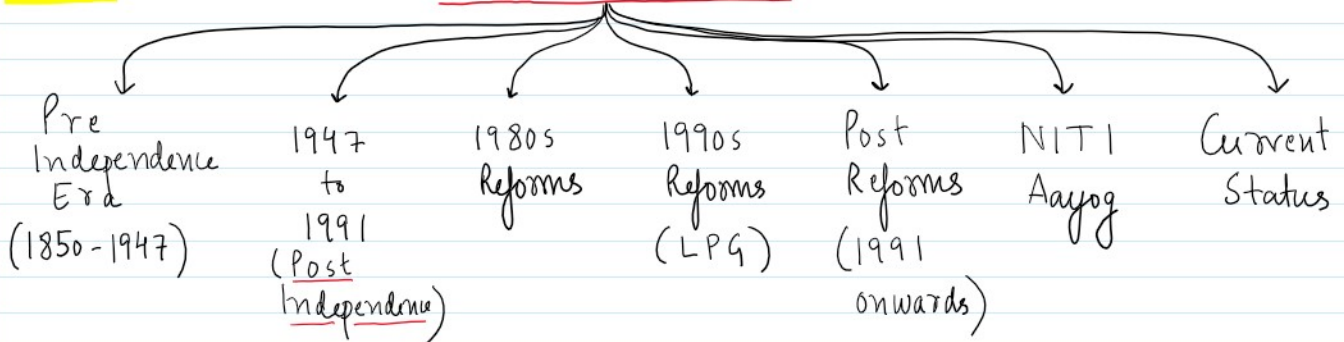 Pre
Independence
Era
(1850-1947)
1947
to
1991
(Post
Independence)
1980s
Reforms
1990s
Reforms
(LPG)
Post
Reforms
(1991
onwards)
NITI
Aayog
Current
Status